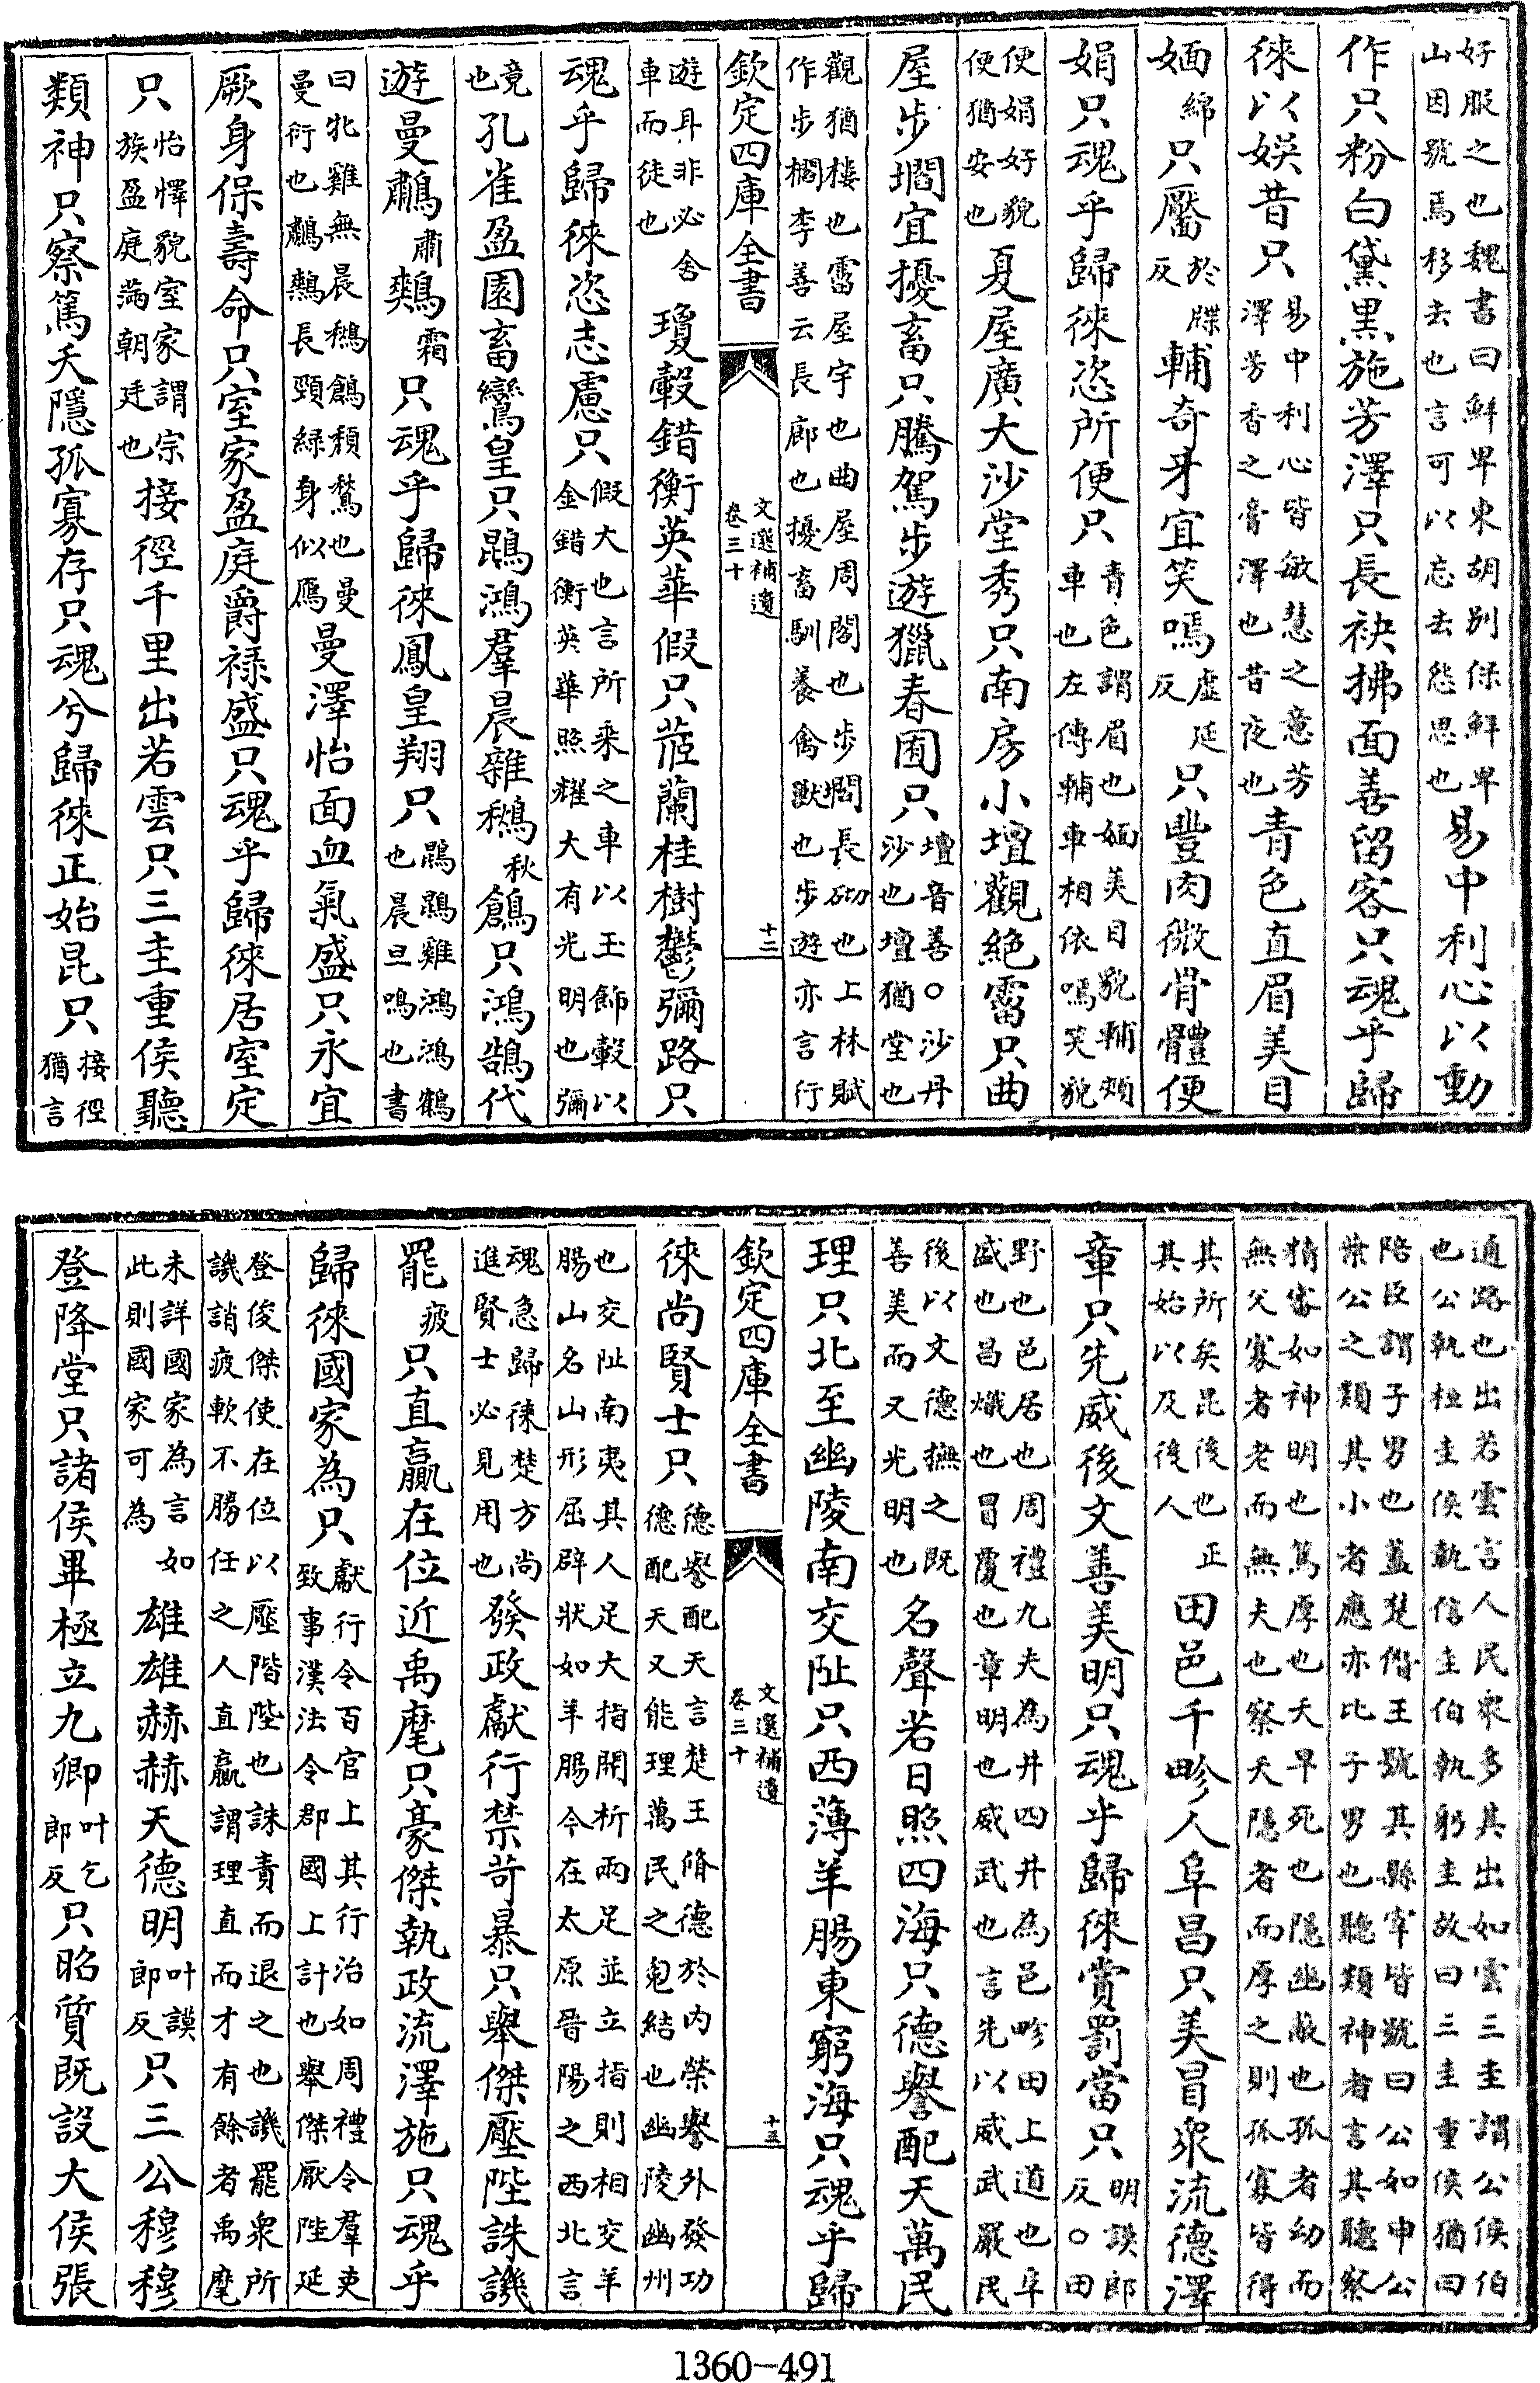 好服之也魏書曰鮮卑東胡别保鮮卑
山因號焉移去也言可以忘去怨思也易中利心以動
作只粉白黛黒施芳澤只長袂拂面善留客只魂乎歸
徠以娛昔只易中利心皆敏慧之意芳
澤芳香之膏澤也昔夜也青色直眉美目
媔綿只靨於牒反輔奇牙宜笑嗎虛延反只豐肉微骨體便
娟只魂乎歸徠恣所便只青色謂眉也媔美目貌輔頰
車也左傳輔車相依嗎笑貌
便娟好貌
便猶安也夏屋廣大沙堂秀只南房小壇觀絶霤只曲
屋步壛宜擾畜只騰駕步遊獵春囿只壇音善○沙丹
沙也壇猶堂也
觀猶樓也霤屋宇也曲屋周閣也步壛長砌也上林賦
作步櫩李善云長廊也擾畜馴養禽獸也步遊亦言行
欽定四庫全書
文選補遺
卷三十
十二
遊耳非必舍
車而徒也瓊轂錯衡英華假只茝蘭桂樹鬱彌路只
魂乎歸徠恣志慮只假大也言所乘之車以玉飾轂以
金錯衡英華照耀大有光明也彌
竟
也孔雀盈園畜鸞皇只鵾鴻羣晨雜鶖秋鶬只鴻鵠代
遊曼鷫肅鷞霜只魂乎歸徠鳳皇翔只鵾鵾雞鴻鴻鶴
也晨旦鳴也書
曰牝雞無晨鶖鶬頽鶖也曼
曼衍也鷫鷞長頸緑身似鴈曼澤怡面血氣盛只永宜
厥身保壽命只室家盈庭爵禄盛只魂乎歸徠居室定
只怡懌貌室家謂宗
族盈庭滿朝廷也接徑千里出若雲只三圭重侯聽
類神只察篤夭隱孤寡存只魂兮歸徠正始昆只接徑
猶言
通路也出若雲言人民衆多其出如雲三圭謂公侯伯
也公執桓圭侯執信圭伯執躬圭故曰三圭重侯猶曰
陪臣謂子男也蓋楚僭王號其縣宰皆號曰公如申公
葉公之類其小者應亦比子男也聽類神者言其聽察
猜審如神明也篤厚也夭早死也隱幽蔽也孤者幼而
無父寡者老而無夫也察夭隱者而厚之則孤寡皆得
其所矣昆後也正
其始以及後人田邑千畛人阜昌只美冒衆流德澤
章只先威後文善美明只魂乎歸徠賞罰當只明謨郎
反○田
野也邑居也周禮九夫為井四井為邑畛田上道也阜
盛也昌熾也冒覆也章明也威武也言先以威武嚴民
後以文德撫之既
善美而又光明也名聲若日照四海只德譽配天萬民
理只北至幽陵南交阯只西薄羊腸東窮海只魂乎歸
欽定四庫全書
文選補遺
卷三十
十三
徠尚賢士只德譽配天言楚王脩德於内榮譽外發功
德配天又能理萬民之寃結也幽陵幽州
也交阯南夷其人足大指開析兩足並立指則相交羊
腸山名山形屈辟狀如羊腸今在太原晉陽之西北言
魂急歸徠楚方尚
進賢士必見用也發政獻行禁苛暴只舉傑壓陛誅譏
罷疲只直贏在位近禹麾只豪傑執政流澤施只魂乎
歸徠國家為只獻行令百官上其行治如周禮令羣吏
致事漢法令郡國上計也舉傑厭陛延
登俊傑使在位以壓階陛也誅責而退之也譏罷衆所
譏誚疲軟不勝任之人直贏謂理直而才有餘者禹麾
未詳國家為言如
此則國家可為雄雄赫赫天德明叶謨
郎反只三公穆穆
登降堂只諸侯畢極立九卿叶乞
郎反只昭質既設大侯張
1360-491